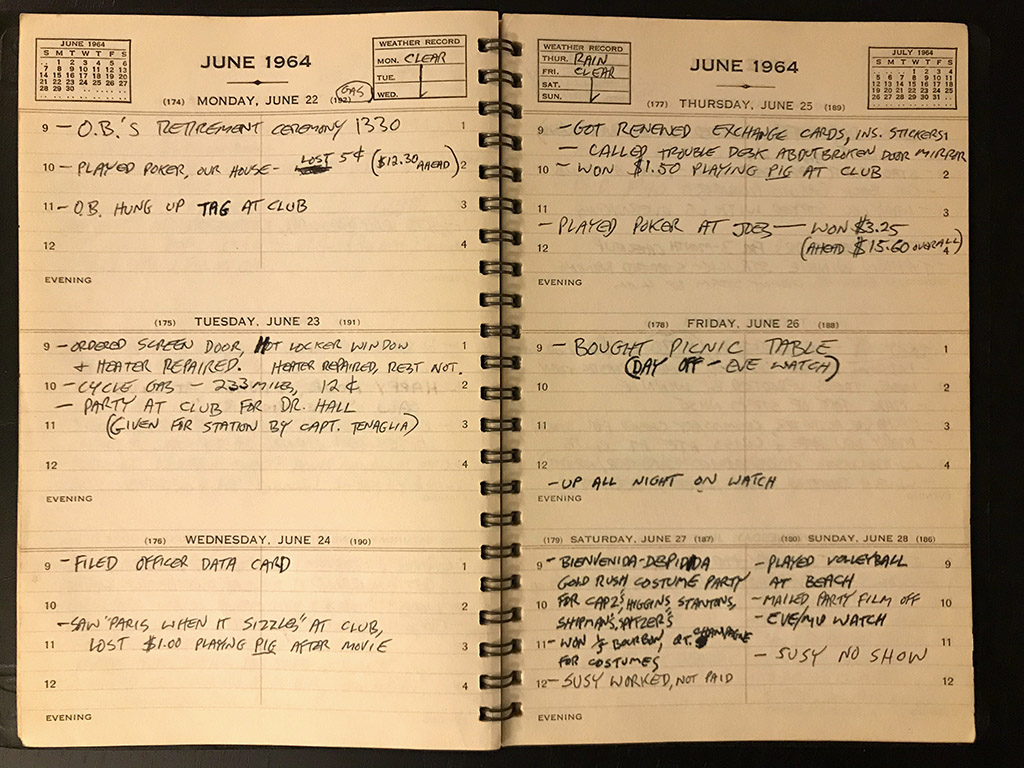 JUNE 1964
S M T W T F S
1 2 3 4 5 6
7 8 9 10 11 12 13
14 15 16 17 18 19 20
21 22 23 24 25 26 27
28 29 30
JUNE 1964
WEATHER RECORD
MON. CLEAR
TUE.
WED.
GAS
(174) MONDAY, JUNE 22 (192)
9 - O.B.'S RETIREMENT CEREMONY 1330 1
10 - PLAYED POKER, OUR HOUSE - LOST 5¢ ($12.30 AHEAD) 2
11 - O.B. HUNG UP TAG AT CLUB 3
12 4
EVENING
(175) TUESDAY, JUNE 23 (191)
9 - ORDERED SCREEN DOOR, HOT LOCKER WINDOW 1
+ HEATER REPAIRED. HEATER REPAIRED, REST NOT.
10 - CYCLE GAS - 233 MILES, 12¢ 2
- PARTY AT CLUB FOR DR. HALL
11 (GIVEN FOR STATION BY CAPT. TENAGLIA) 3
12 4
EVENING
(176) WEDNESDAY, JUNE 24 (190)
9 - FILED OFFICER DATA CARD 1
10 2
- SAW "PARIS WHEN IT SIZZLES" AT CLUB,
11 LOST $1.00 PLAYING PIG AFTER MOVIE 3
12 4
EVENING
WEATHER RECORD
THUR. RAIN
FRI. CLEAR
SAT.
SUN.
JUNE 1964
JULY 1964
S M T W T F S
1 2 3 4
5 6 7 8 9 10 11
12 13 14 15 16 17 18
19 20 21 22 23 24 25
26 27 28 29 30 31
(177) THURSDAY, JUNE 25 (189)
9 - GOT RENEWED EXCHANGE CARDS, INS. STICKERS 1
- CALLED TROUBLE DESK ABOUT BROKEN DOOR MIRROR
10 - WON $1.50 PLAYING PIG AT CLUB 2
11 3
- PLAYED POKER AT JOES - WON $3.25
12 (AHEAD $15.60 OVERALL) 4
EVENING
(178) FRIDAY, JUNE 26 (188)
9 - BOUGHT PICNIC TABLE 1
(DAY OFF - EVE WATCH)
10 2
11 3
12 4
- UP ALL NIGHT ON WATCH
EVENING
(179) SATURDAY, JUNE 27 (187)
9 - BIENVENIDA-DESPIDIDA
GOLD RUSH COSTUME PARTY
10 FOR CAPZ'S, HIGGINS, STANTONS,
SHIPMAN'S, SPITZER'S
11 - WON 5 BOURBON, QT. CHAMPAGNE
FOR COSTUMES
12 - SUSY WORKED, NOT PAID
EVENING
(180) SUNDAY, JUNE 28 (186)
- PLAYED VOLLEYBALL 9
AT BEACH
- MAILED PARTY FILM OFF 10
- EVE/MID WATCH
11
- SUSY NO SHOW
12